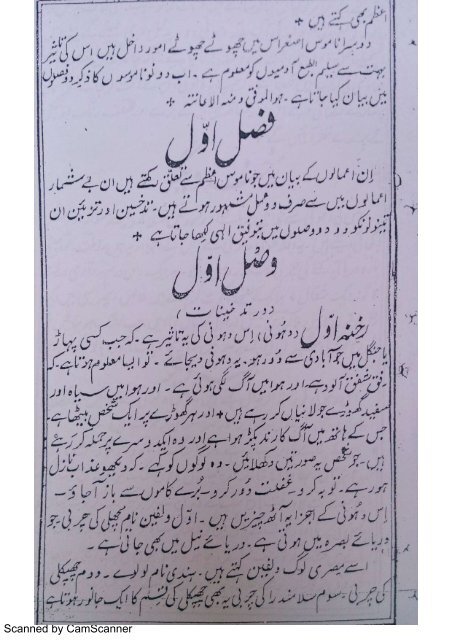 اعظم بھی کہتے ہیں +
دوسرا ناموس اصغر اس میں چھوٹے چھوٹے امور داخل ہیں اس کی تاثیر
بہت سے سلیم الطبع آدمیوں کو معلوم ہے۔ اب دونو ناموسوں کا ذکر دو فصلوں
میں بیان کیا جاتا ہے۔ ہو الموفق و منہ الاعانتہ +
فصل اوّل
اِن اعمالوں کے بیان میں جو ناموس اعظم سے تعلق رکھتے ہیں ان بے شمار
اعمالوں میں سے صرف دو عمل مشہور ہوتے ہیں۔ تدخین اور تزئین ان
دونو کو دو وصلوں میں بتوفیق الٰہی لکھا جاتا ہے +
وصل اوّل
(در تدخینات)
رخنہ اوّل (دھونی) اس دھونی کی یہ تاثیر ہے۔ کہ جب کسی پہاڑ
یا جنگل میں جو آبادی سے دور ہو۔ یہ دھونی دیجائے۔ تو ایسا معلوم ہوتا ہے کہ
افق شفق آلود ہے اور ہوا میں آگ لگی ہوئی ہے۔ اور ہوا میں سیاہ اور
سفید گھوڑے جولانیاں کر رہے ہیں + اور ہر گھوڑے پر ایک شخص بیٹھا ہے۔
جس کے ہاتھ میں آگ کا رند پکڑا ہوا ہے اور وہ ایک دوسرے پر حملہ کر رہے
ہیں۔ جو شخص یہ صورتیں دکھلائیں۔ وہ لوگوں کو کہے۔ کہ دیکھو عذاب نازل
ہو رہا ہے۔ توبہ کرو۔ غفلت دور کرو۔ بُرے کاموں سے باز آجاؤ۔
اس دھونی کے اجزا یہ آٹھ چیزیں ہیں۔ اوّل دلفین نام مچھلی کی چربی۔ جو
دریائے بصرہ میں ہوتی ہے۔ دریائے نیل میں بھی جاتی ہے۔
اسے مصری لوگ دلفین کہتے ہیں۔ ہندی نام لولو ہے۔ دوم چھپکلی
کی چربی۔ سوم سلامندرا کی چربی یہ بھی چھپکلی کی قسم کا ایک جانور ہوتا ہے
Scanned by CamScanner